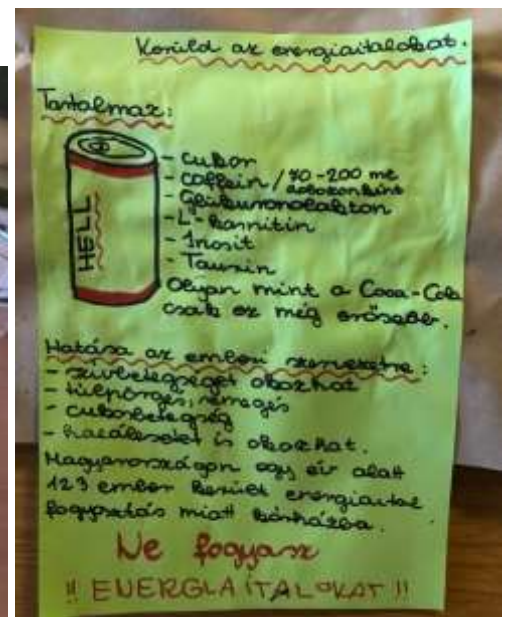 Kerüld az energiaitalokat.
Tartalmaz:
HELL
- cukor
- coffein / 70-200 mg
dobozonként
- Glükuronolakton
- L-karnitin
- Inosit
- Taurin
Olyan mint a Coca-Cola
csak ez még erősebb.
Hatása az emberi szervezetre:
- szívbetegséget okozhat
- túlpörgés, remegés
- cukorbetegség
- halálesetet is okozhat.
Magyarországon egy év alatt
123 ember került energiaital
fogyasztás miatt kórházba.
Ne fogyasz
!! ENERGIAITALOKAT !!